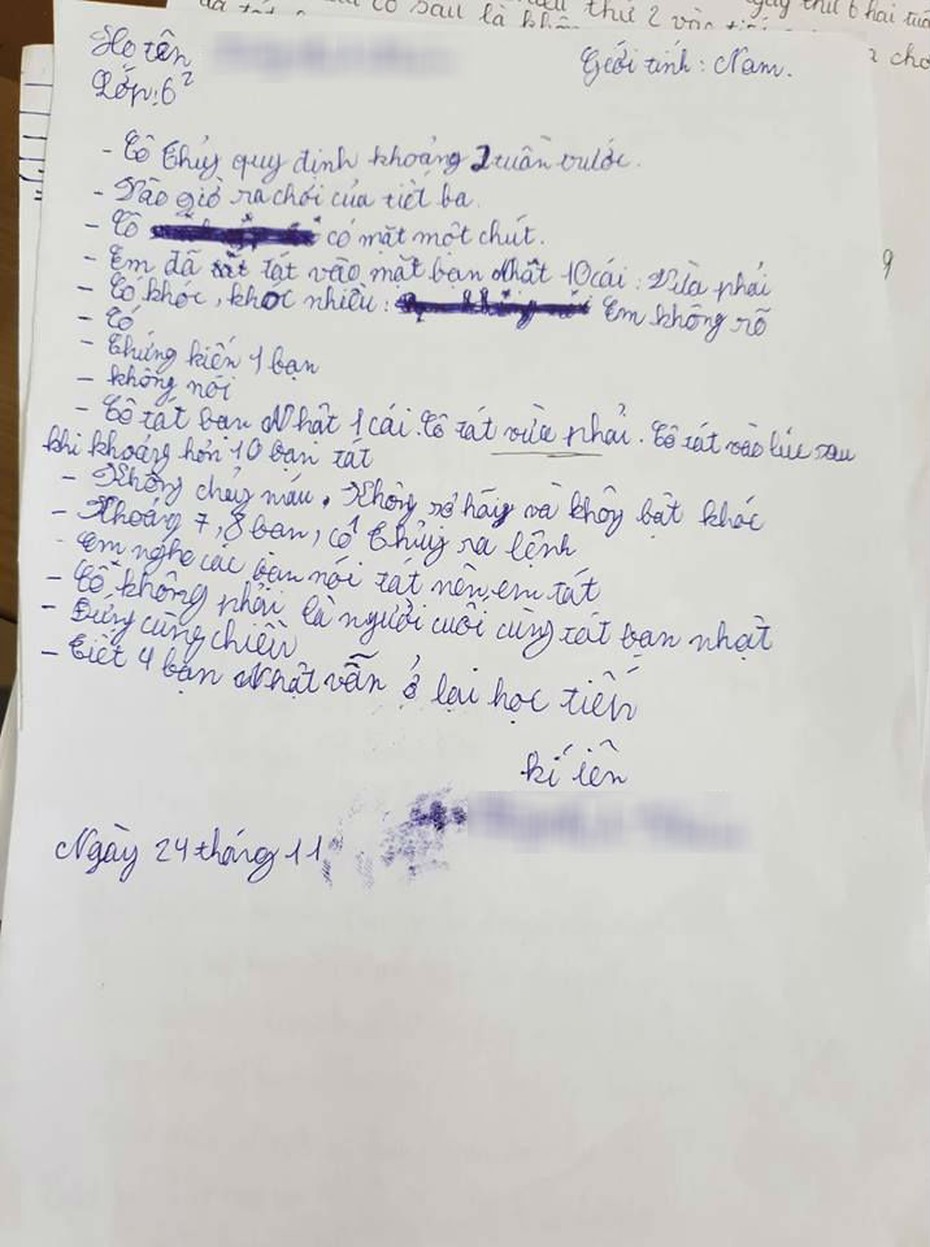 thứ 2 vào
thứ 6 hai tuầ
có sau là
Họ tên
Giới tính: Nam.
Lớp: 6²
- Cô Thủy quy định khoảng 2 tuần trước.
- Vào giờ ra chơi của tiết ba.
- Cô có mặt một chút.
- Em đã tát vào mặt bạn Nhật 10 cái: Vừa phải
- Có khóc, khóc nhiều: Em không rõ
- Có
- Chứng kiến 1 bạn
- không nói
- Cô tát bạn Nhật 1 cái. Cô tát vừa phải. Cô tát vào lúc sau
khi khoảng hơn 10 bạn tát
- Không chảy máu. Không rõ hãy và không bật khóc
- Khoảng 7, 8 bạn, cô Thủy ra lệnh
- Em nghe các bạn nói tát nên em tát
- Cô không phải là người cuối cùng tát bạn nhật
- Đứng cùng chiều
- Tiết 4 bạn Nhật vẫn ở lại học tiến
kí tên
Ngày 24 tháng 11